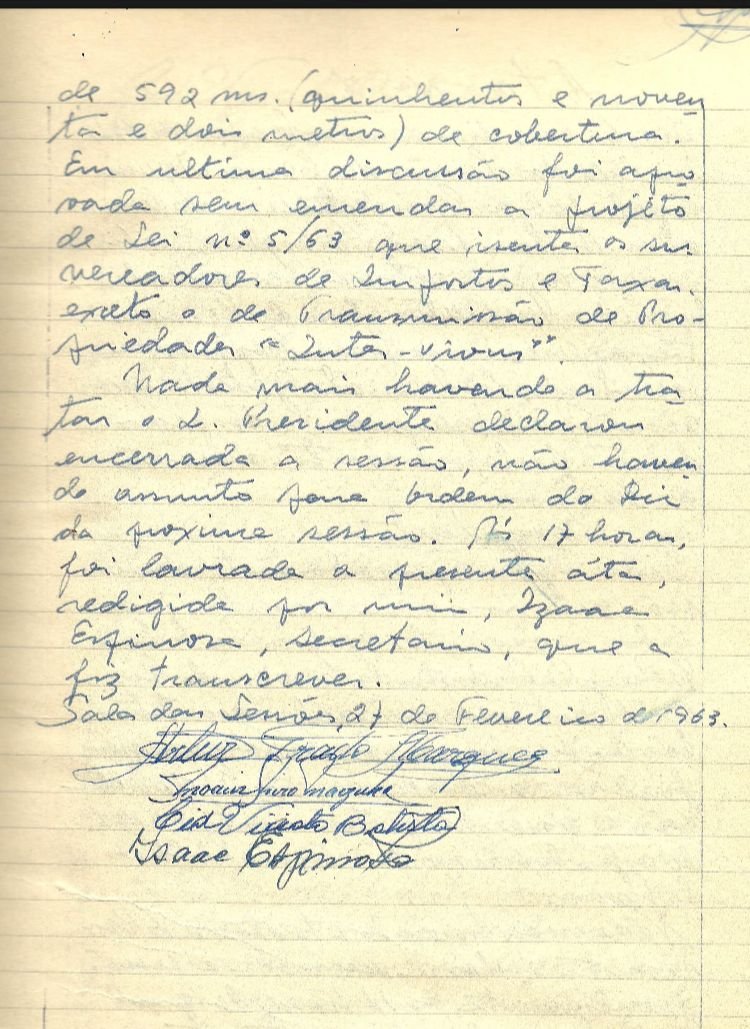 de 592 ms. (quinhentos e noven
ta e dois metros) de cobertura.
Em ultima discussão foi apro
vada sem emendas o projéto
de Lei nº 5/63 que isenta os srs
vereadores de Impostos e Taxas
exeto o de Transmissão de Pro-
priedades "Inter-vivus".
Nada mais havendo a tra
tar o S. Presidente declarou
encerrada a sessão, não haven
do assunto para ordem do Dia
da proxima sessão. Ás 17 horas,
foi lavrada a presente áta,
redigida por mim, Izaac
Espinosa, secretario, que a
fiz transcrever.
Sala das Sessões, 27 de Fevereiro de 1963.
Marques
Cid Batista
Isaac Espinosa